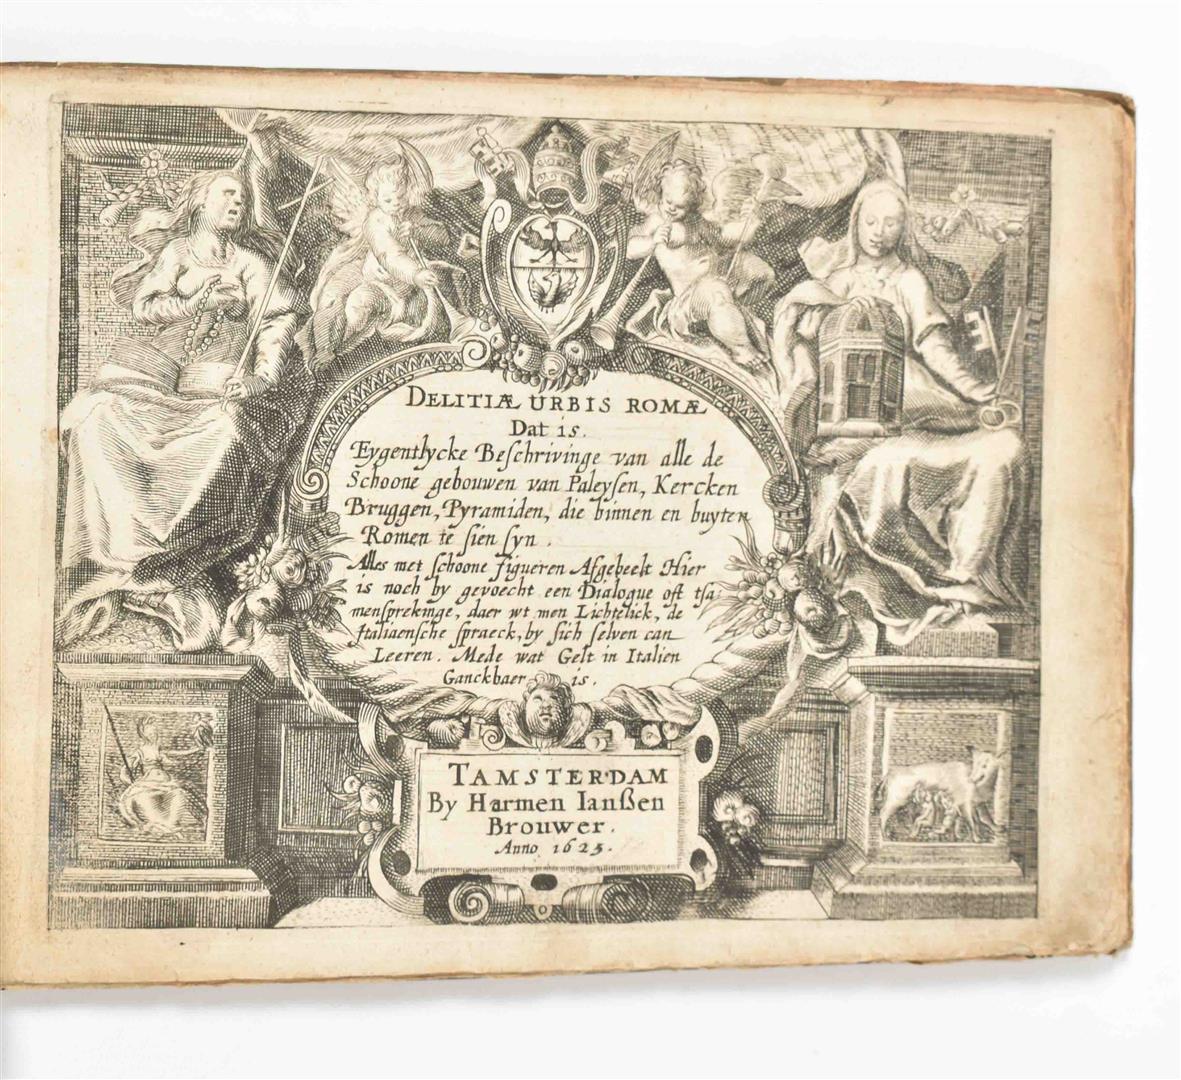 DELITIÆ URBIS ROMÆ
Dat is.
Eygentlycke Beſchrivinge van alle de
Schoone gebouwen van Paleyſen, Kercken
Bruggen, Pyramiden, die binnen en buyten
Romen te ſien ſyn.
Alles met ſchoone figueren Afgebeelt Hier
is noch by gevoecht een Dialogue oft tſa-
menſprekinge, daer wt men Lichtelick, de
Italiaenſche ſpraeck, by ſich ſelven can
Leeren. Mede wat Gelt in Italien
Ganckbaer is.
TAMSTERDAM
By Harmen Ianßen
Brouwer.
Anno 1625.